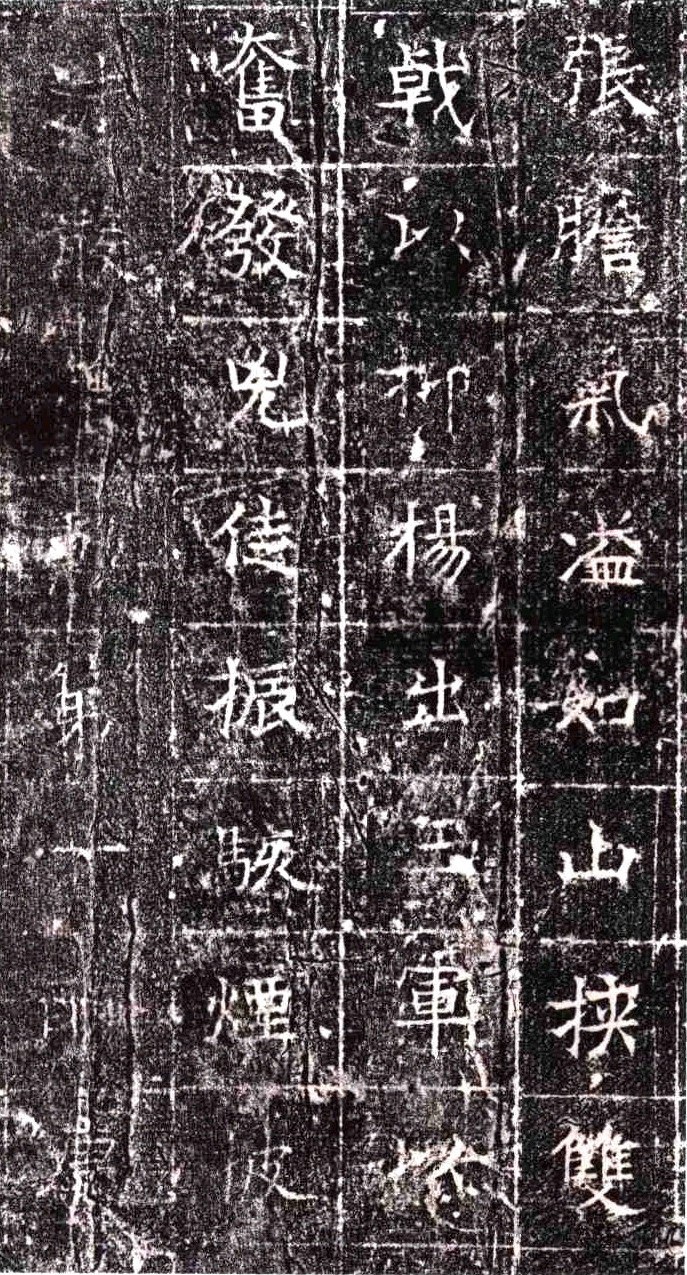 張膽氣溢如山挾雙
戟以抑楊出王軍
奮發兇徒振駭煙波
弟一